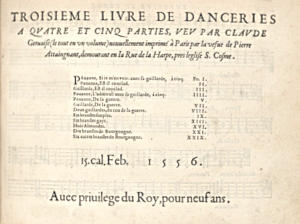 TROISIEME LIVRE DE DANCERIES
A QVATRE ET CINQ PARTIES, VEV PAR CLAVDE
Geruaise (le tout en vn volume) nouuellement imprimé à Paris par la vefue de Pierre
Attaingnant, demourant en la Rue de la Harpe, pres leglise S. Cosme.
Pauane, Et si il conclud. II.
Gaillarde, Et il conclud. III.
Pauane, L'admiral auec sa gaillarde, à cinq. IIII.
Pauane, De la guerre. V.
Gaillarde, De la guerre. VI.
Deux gaillardes, du ton de la guerre. VIII.
Six bransles simples. IX.
Six bransles gays. XIII.
Huit Almandes. XVI.
Dix bransles de Bourgongne. XXI.
Six autres bransles de Bourgongne. XXIX.
15. cal. Feb. 1556.
Auec priuilege du Roy, pour neuf ans.